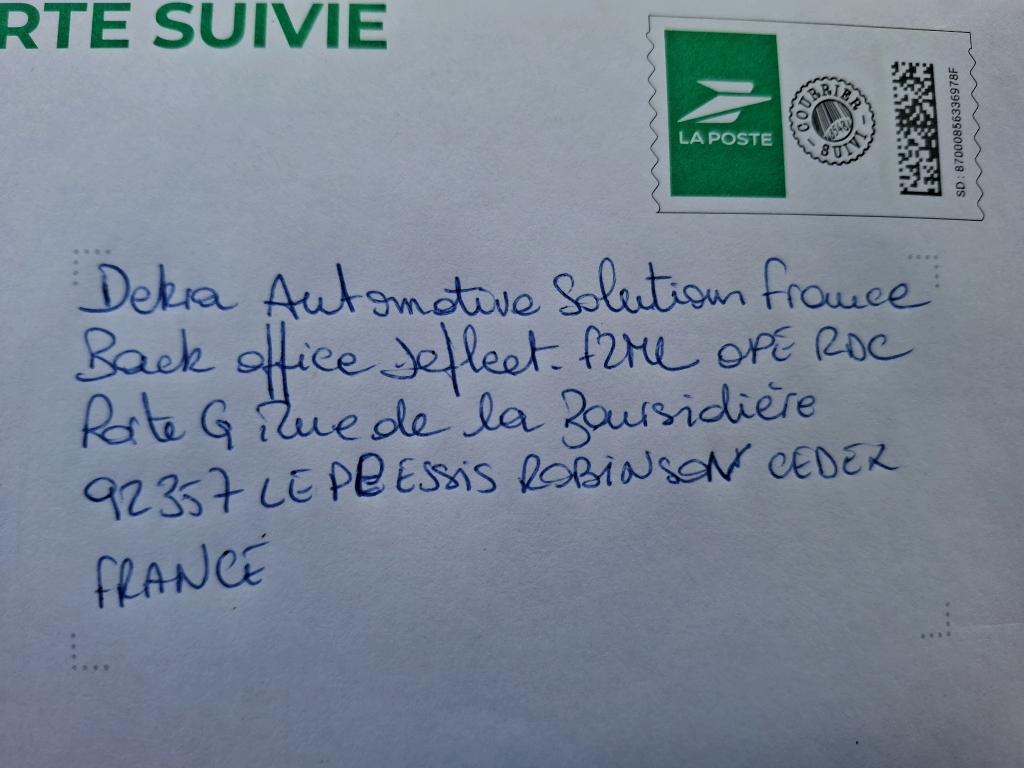 RTE SUIVIE
LA POSTE
COURRIER SUIVI
SD : 87000856336978F
Dekra Automotive Solutions France
Back office Defleet. F2ML OPE RDC
Porte G Rue de la Boursidière
92357 LE PLESSIS ROBINSON CEDEX
FRANCE